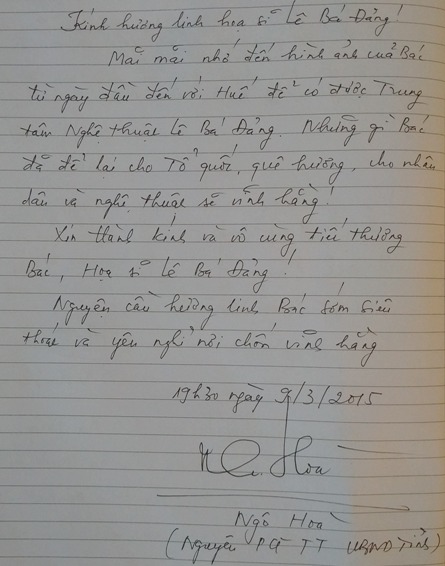 Kính hương linh họa sĩ Lê Bá Đảng!
Mãi mãi nhớ đến hình ảnh của Bác
từ ngày đầu đến với Huế để có được Trung
tâm Nghệ thuật Lê Bá Đảng. Những gì Bác
đã để lại cho Tổ quốc, quê hương, cho nhân
dân và nghệ thuật sẽ vĩnh hằng!
Xin thành kính và vô cùng tiếc thương
Bác, Họa sĩ Lê Bá Đảng!
Nguyện cầu hương linh Bác sớm siêu
thoát và yên nghỉ nơi chốn vĩnh hằng
19h30 ngày 9/3/2015
Hoà
Ngô Hoà
(Nguyên PCT TT UBND Tỉnh)